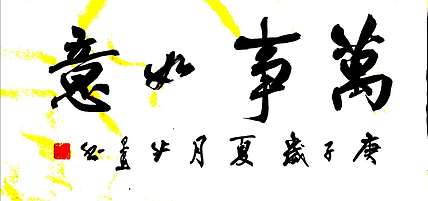 萬事如意
庚子歲夏月